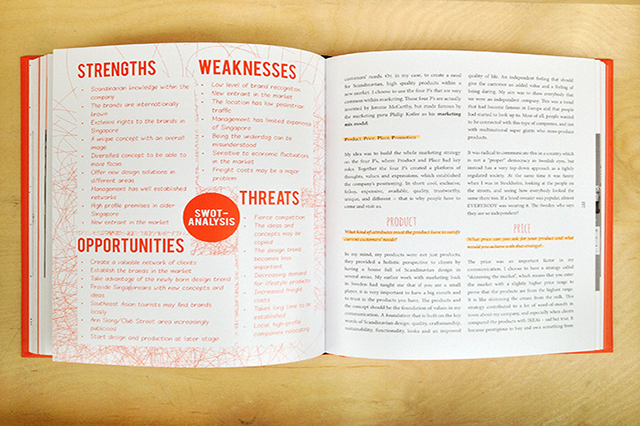 STRENGTHS
Scandinavian knowledge within the
company
The brands are internationally
known
Exclusive rights to the brands in
Singapore
A unique concept with an overall
image
Diversified concept to be able to
move focus
Offer new design solutions in
different areas
Management has well established
networks
High profile premises in older
Singapore
New entrant in the market
WEAKNESSES
Low level of brand recognition
New entrant in the market
The location has low pedestrian
traffic
Management has limited experience
of Singapore
Being the underdog can be
misunderstood
Sensitive to economic fluctuations
in the market
Freight costs may be a major
problem
SWOT-
ANALYSIS
THREATS
Fierce competition
The ideas and
concepts may be
copied
The design trend
becomes less
important
Decreasing demand
for lifestyle products
Increased freight
costs
Takes long time to be
established
Local high-profile
companies relocating
OPPORTUNITIES
Create a valuable network of clients
Establish the brands in the market
Take advantage of the newly born design trend
Provide Singaporeans with new concepts and
ideas
Southeast Asian tourists may find brands
locally
Ann Siang-Club Street area increasingly
publicised
Start design and production at later stage
customers' needs. Or, in my case, to create a need
for Scandinavian, high quality products within a
new market. I choose to use the four P's that are very
common within marketing. These four P's are actually
invented by Jerome McCarthy, but made famous by
the marketing guru Philip Kotler as his marketing
mix model:
Product, Price, Place, Promotion
My idea was to build the whole marketing strategy
on the four P's, where Product and Place had key
roles. Together the four P's created a platform of
thoughts, values and expressions, which established
the company's positioning. In short: cool, exclusive,
fashion, expensive, available, quality, trustworthy,
unique, and different – that is why people have to
come and visit us.
PRODUCT
What kind of attributes must the product have to satisfy
current customers' needs?
In my mind, my products were not just products,
they provided a holistic perspective to clients by
having a house full of Scandinavian design in
several areas. My earlier work with marketing back
in Sweden had taught me that if you are a small
player, it is very important to have a big mouth and
to trust in the products you have. The products and
the concept should be the foundation of values in my
communication. A foundation that is built on the key
words of Scandinavian design: quality, craftmanship,
sustainability, functionality, looks and an improved
quality of life. An independent feeling that should
give the customer an added value and a feeling of
being daring. My aim was to show everybody that
we were an independent company. This was a trend
that had become famous in Europe and that people
had started to look up to. Most of all, people wanted
to be connected with this type of companies, and not
with multinational super giants who mass-produce
products.
It was radical to communicate this in a country which
is not a "proper" democracy as Swedish eyes, but
instead has a very top-down approach as a tightly
regulated society. At the same time it was funny
when I was in Stockholm, looking at the people on
the streets, and seeing how everybody looked the
same there too. If a hood sweater was popular, almost
EVERYBODY was wearing it. The Swedes who says
they are so independent!
PRICE
What price can you ask for your product and what
would you achieve with that strategy?
The price was an important factor in my
communication. I choose to have a strategy called
"skimming the market", which means that you enter
the market with a slightly higher price range to
prove that the products are from the highest range.
It is like skimming the cream from the milk. This
strategy contributed to a lot of word-of-mouth in
town about my company, and especially when clients
compared the products with IKEAs – sad but true. It
became prestigious to buy and own something from